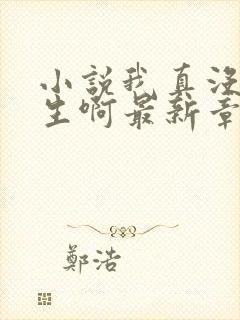 小説我真没
生啊最新章
鄭浩